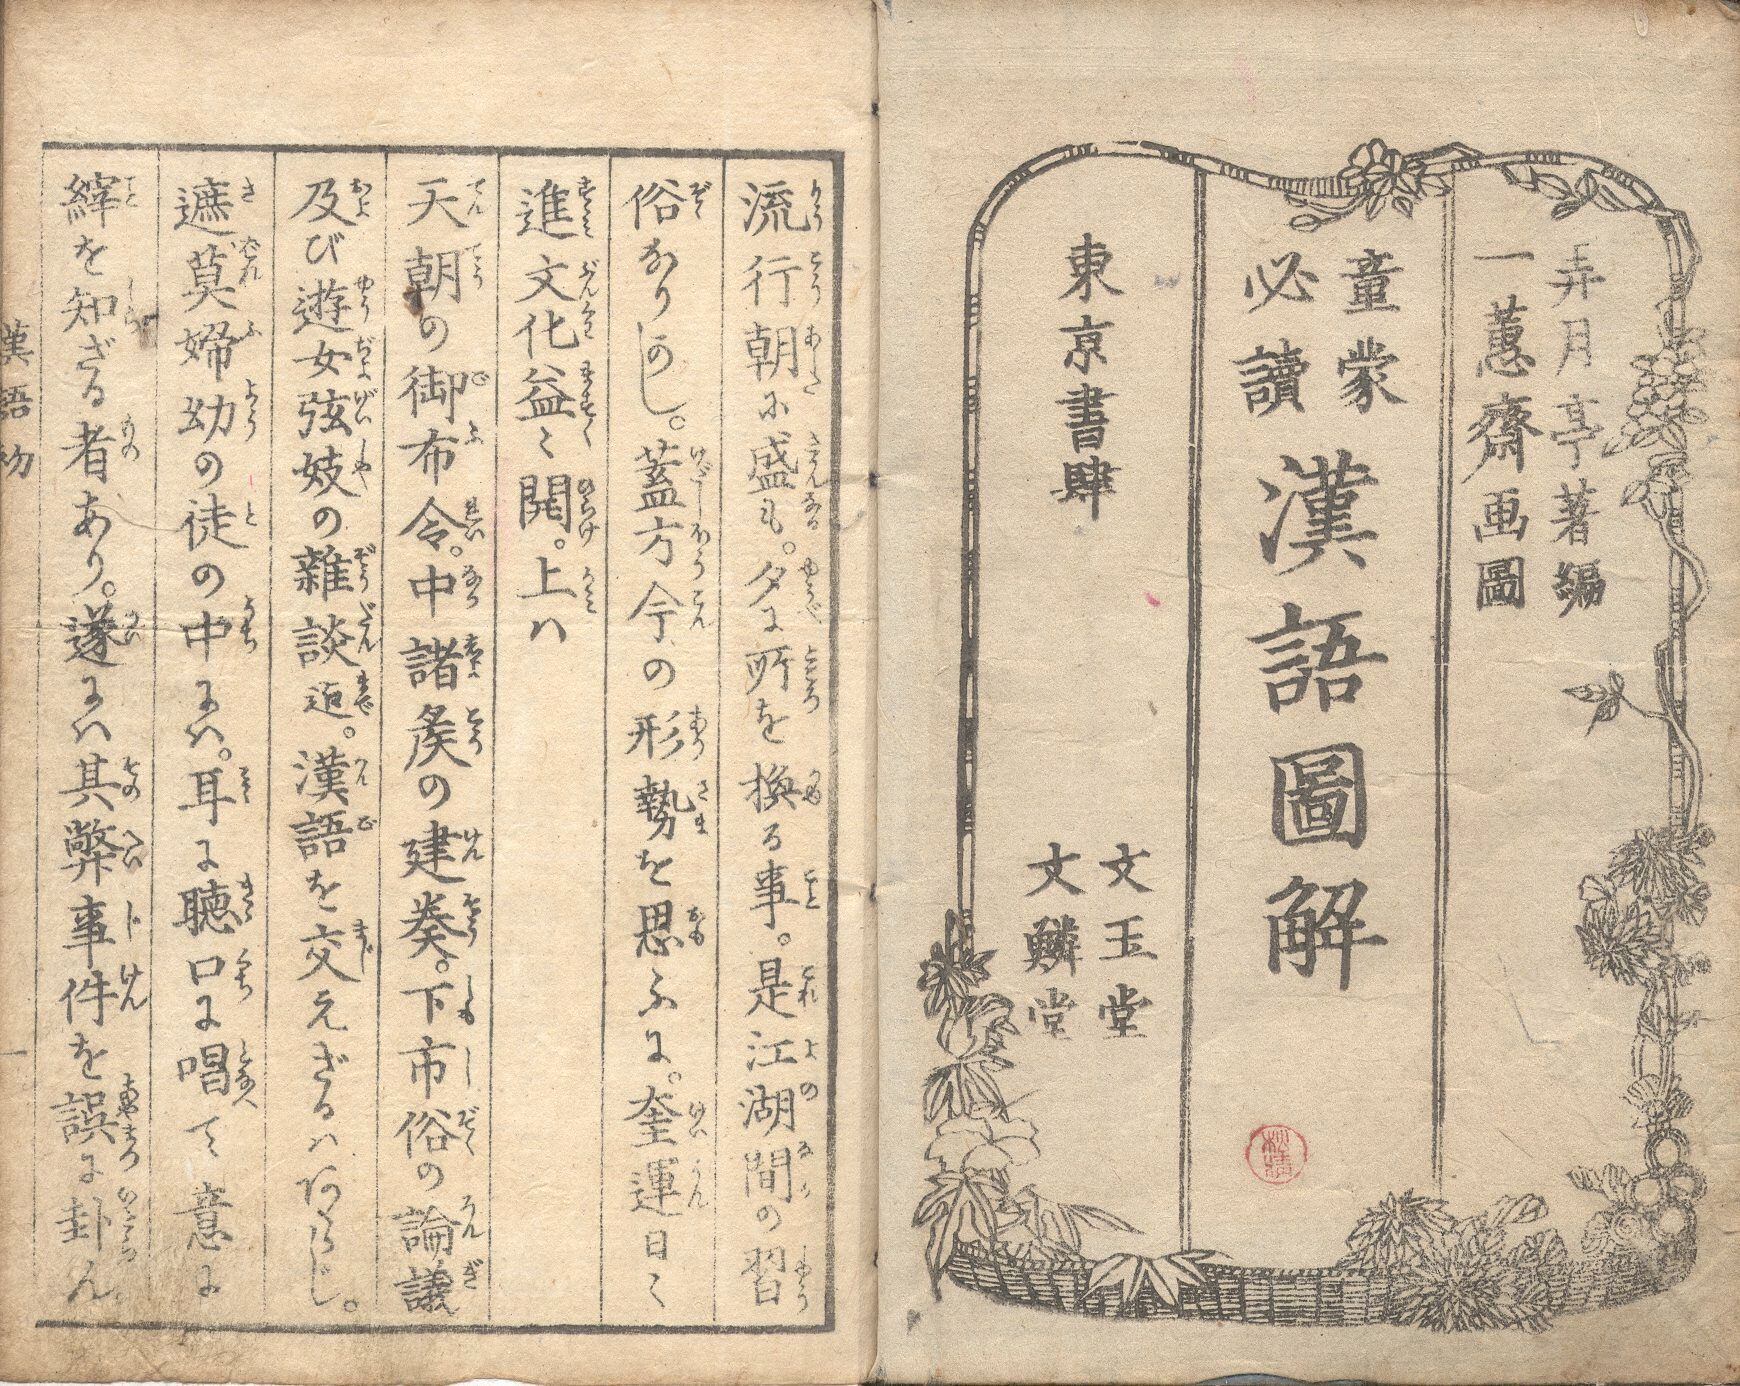 弄月亭著編
一蕙齋画圖
童蒙
必讀
漢語圖解
東京書肆
文玉堂
文鱗堂
流行朝に盛も。夕に所を換る事。是江湖間の習
俗なりかし。蓋方今の形勢を思ふに。奎運日〻
進文化益〻開。上ハ
天朝の御布令。中諸矦の建奏。下市俗の論議
及び遊女弦妓の雜談迠。漢語を交えざるハあらじ。
遮莫婦幼の徒の中にハ。耳に聴口に唱て意に
繹を知ざる者あり。遂にハ其弊事件を誤に卦ん
漢語